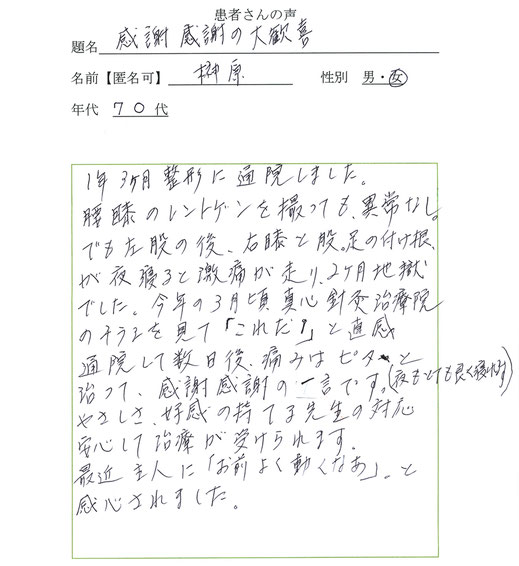 患者さんの声
題名 感謝 感謝の大歓喜
名前【匿名可】 榊原 性別 男・女
年代 70代
1年3ヶ月整形に通院しました。
腰膝のレントゲンを撮っても、異常なし。
でも左股の後、右膝と股。足の付け根、
が夜寝ると激痛が走り、2ヶ月地獄
でした。今年の3月頃真心鍼灸治療院
のチラシを見て「これだ!」と直感
通院して数日後、痛みはピターと
治って、感謝感謝の一言です。(夜もとても良く寝れます)
やさしさ、好感の持てる先生の対応
安心して治療が受けられます。
最近主人に「お前よく動くなあ」。と
感心されました。